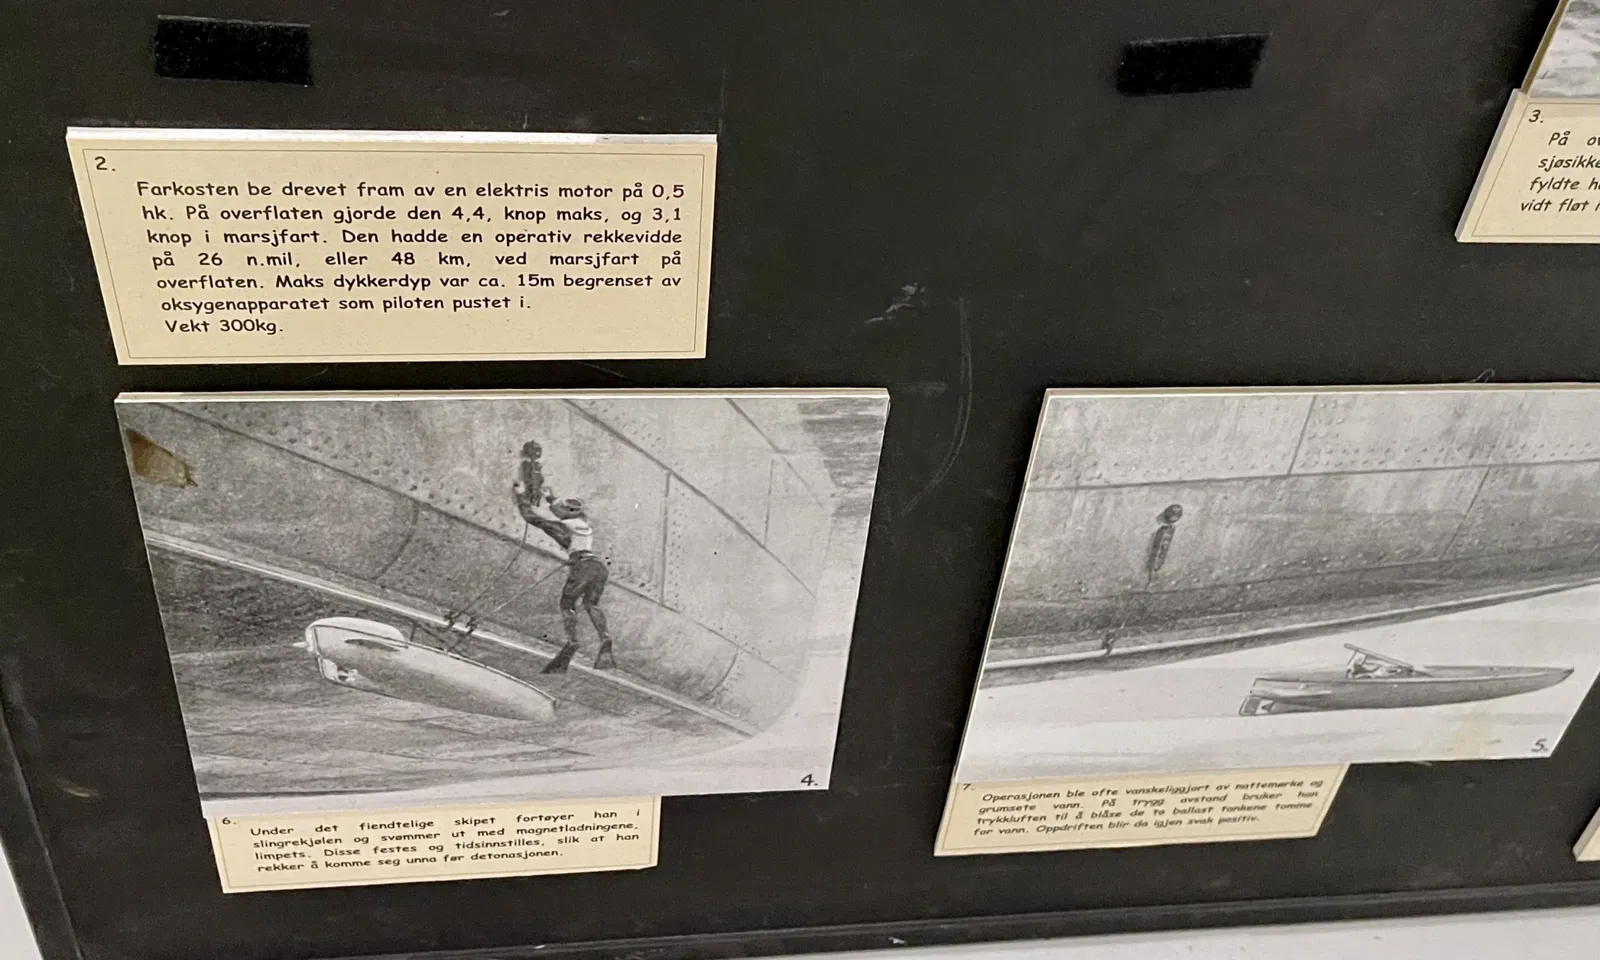 2.
Farkosten be drevet fram av en elektris motor på 0,5
hk. På overflaten gjorde den 4,4, knop maks, og 3,1
knop i marsjfart. Den hadde en operativ rekkevidde
på 26 n.mil, eller 48 km, ved marsjfart på
overflaten. Maks dykkerdyp var ca. 15m begrenset av
oksygenapparatet som piloten pustet i.
Vekt 300kg.
3.
På
sjøsikke
fyldte
vidt fløt
4.
5.
6.
Under det fiendtelige skipet fortøyer han i
slingrekjølen og svømmer ut med magnetladningene,
limpets. Disse festes og tidsinnstilles, slik at han
rekker å komme seg unna før detonasjonen.
7.
Operasjonen ble ofte vanskeliggjort av nattemørke og
grumsete vann. På trygg avstand bruker han
trykkluften til å blåse de to ballast tankene tomme
for vann. Oppdriften blir da igjen svak positiv.